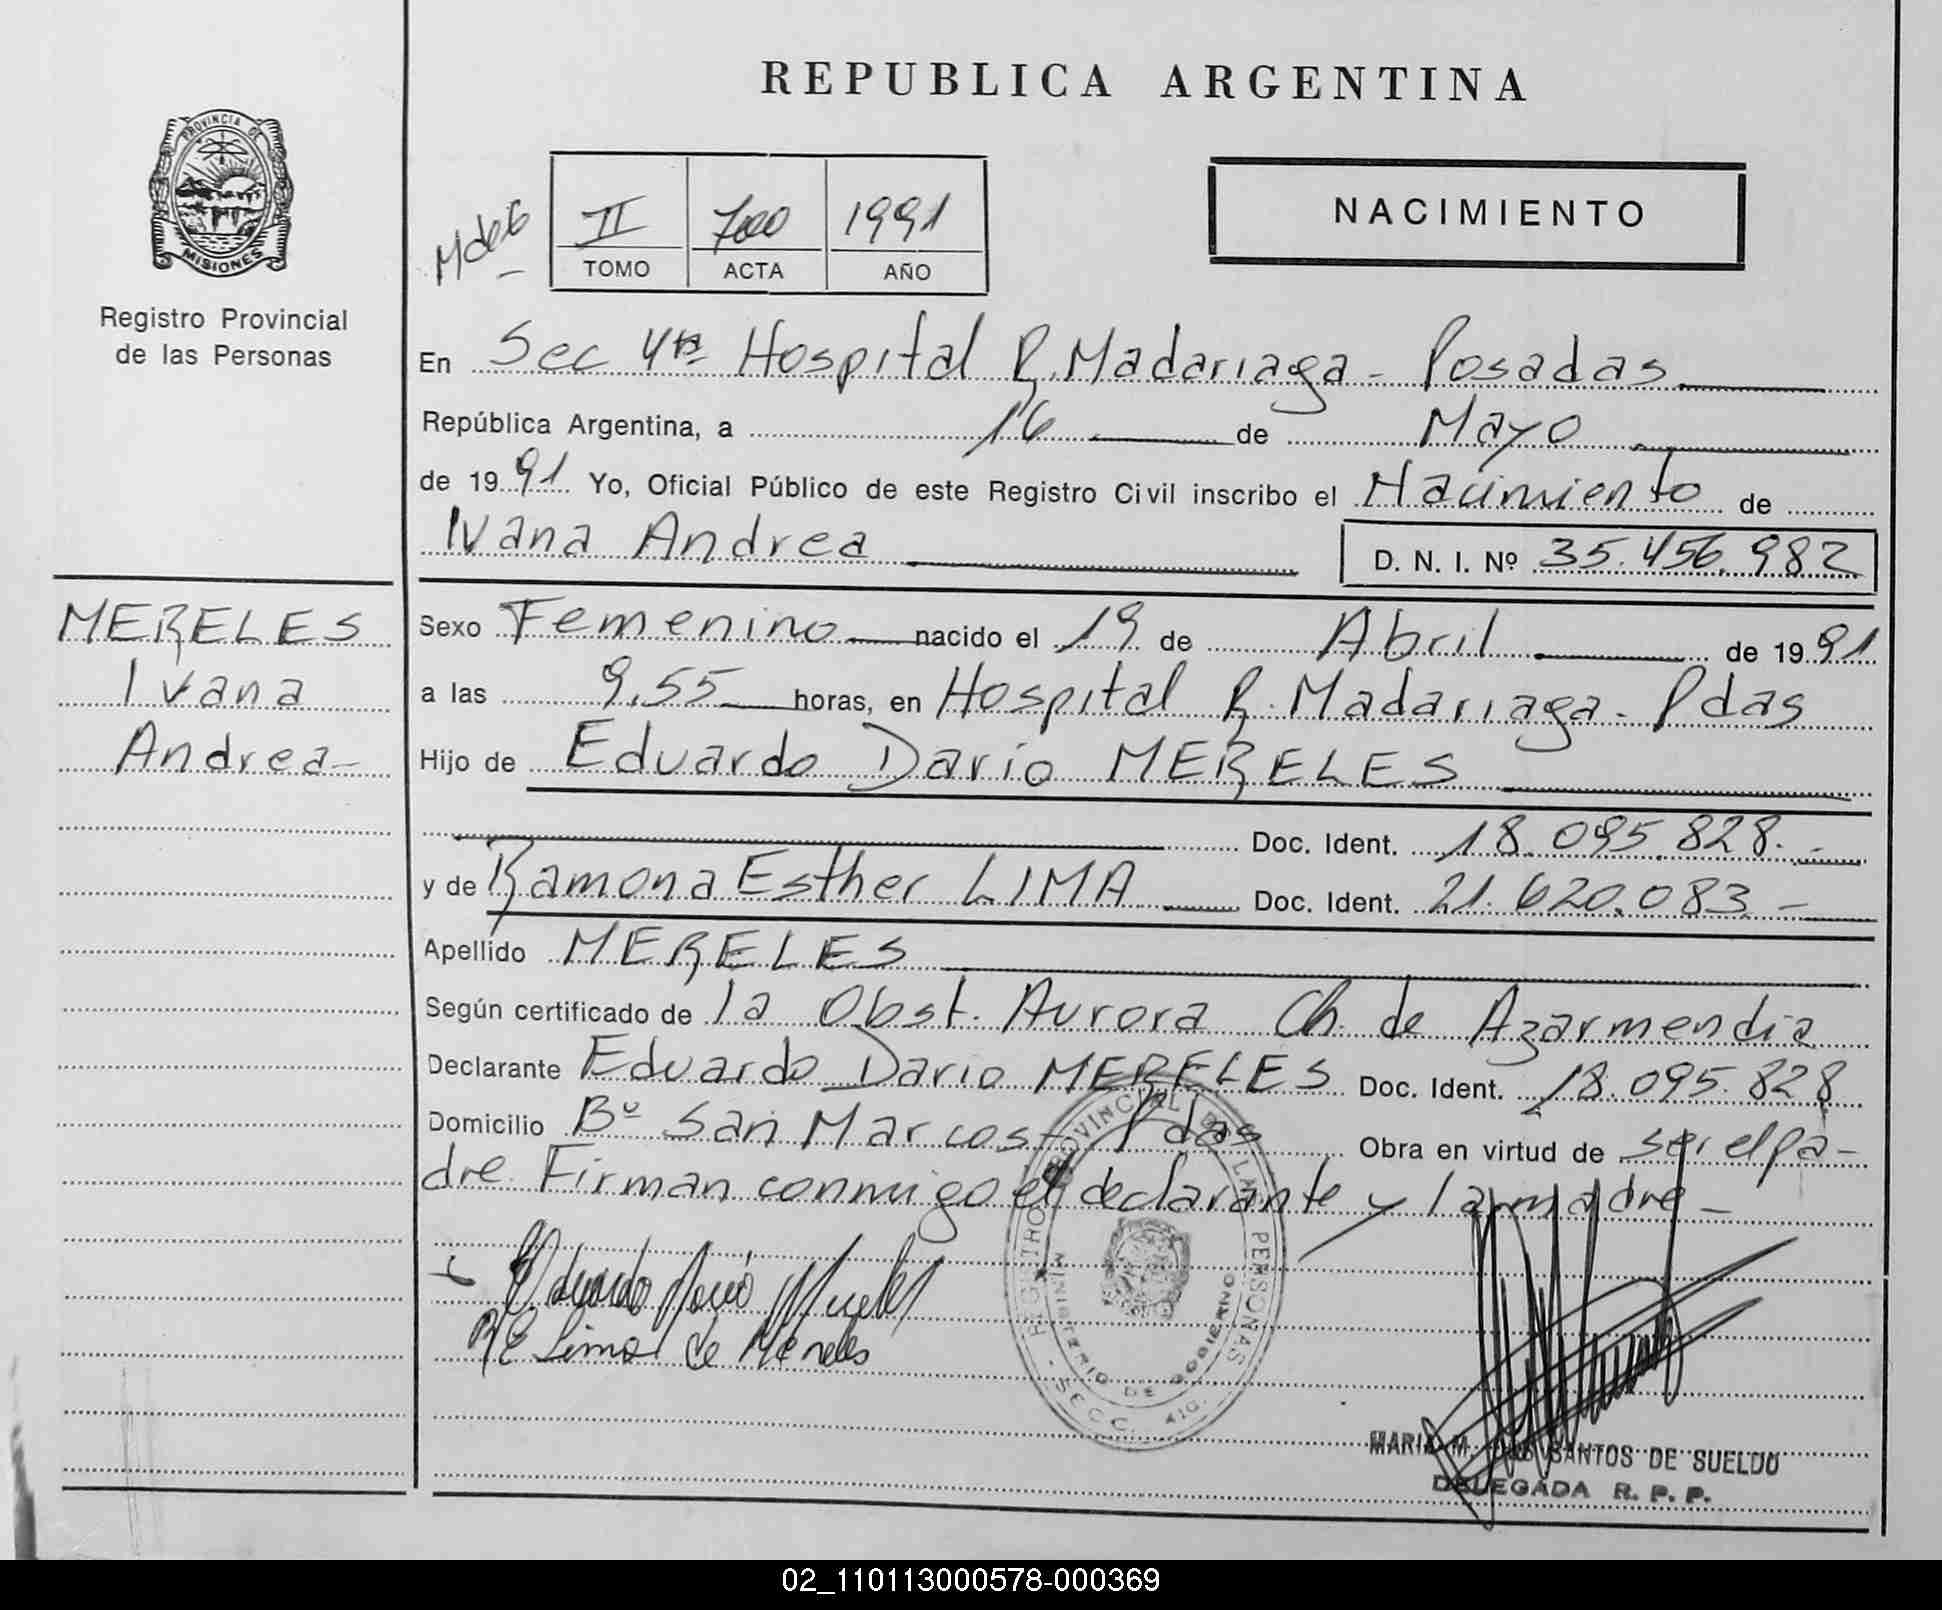 REPUBLICA ARGENTINA
PROVINCIA DE
MISIONES
Registro Provincial
de las Personas
II 700 1991
TOMO ACTA AÑO
NACIMIENTO
En Sec 4ta Hospital R. Madariaga - Posadas
República Argentina, a 16 de Mayo
de 1991 Yo, Oficial Público de este Registro Civil inscribo el Nacimiento de
Ivana Andrea D. N. I. Nº 35.456.982
MERELES
Ivana
Andrea-
Sexo Femenino nacido el 19 de Abril de 1991
a las 9,55 horas, en Hospital R. Madariaga - Pdas
Hijo de Eduardo Dario MERELES
Doc. Ident. 18.095.828.-
y de Ramona Esther LIMA Doc. Ident. 21.620.083.-
Apellido MERELES
Según certificado de la Obst. Aurora Ch. de Azarmendia
Declarante Eduardo Dario MERELES Doc. Ident. 18.095.828
Domicilio Bº San Marcos - Pdas Obra en virtud de ser el pa-
dre. Firman conmigo el declarante y la madre -
Eduardo Dario Mereles
R E Lima de Mereles
REGISTRO PROVINCIAL DE LAS PERSONAS
MINISTERIO DE GOBIERNO
SECC. 4ta.
MARIA M. DOS SANTOS DE SUELDO
DELEGADA R. P. P.
02_110113000578-000369